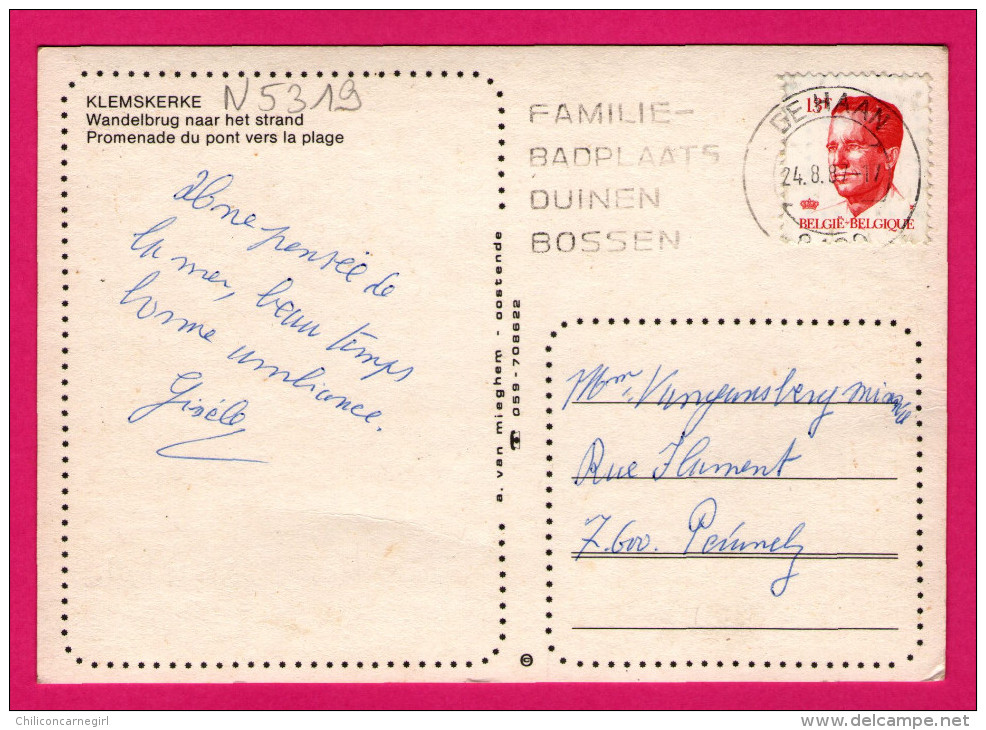 KLEMSKERKE N5319
Wandelbrug naar het strand
Promenade du pont vers la plage
pensée de
la mer, beau temps
bonne ambiance.
Gisèle
a. van mieghem - oostende
☎ 059-708622
©
FAMILIE-
BADPLAATS
DUINEN
BOSSEN
DE HAAN
24.8.87-17
13F
BELGIË-BELGIQUE
Mme
Rue Flament
7600. Péruwelz
Chiliconcarnegirl
www.delcampe.net